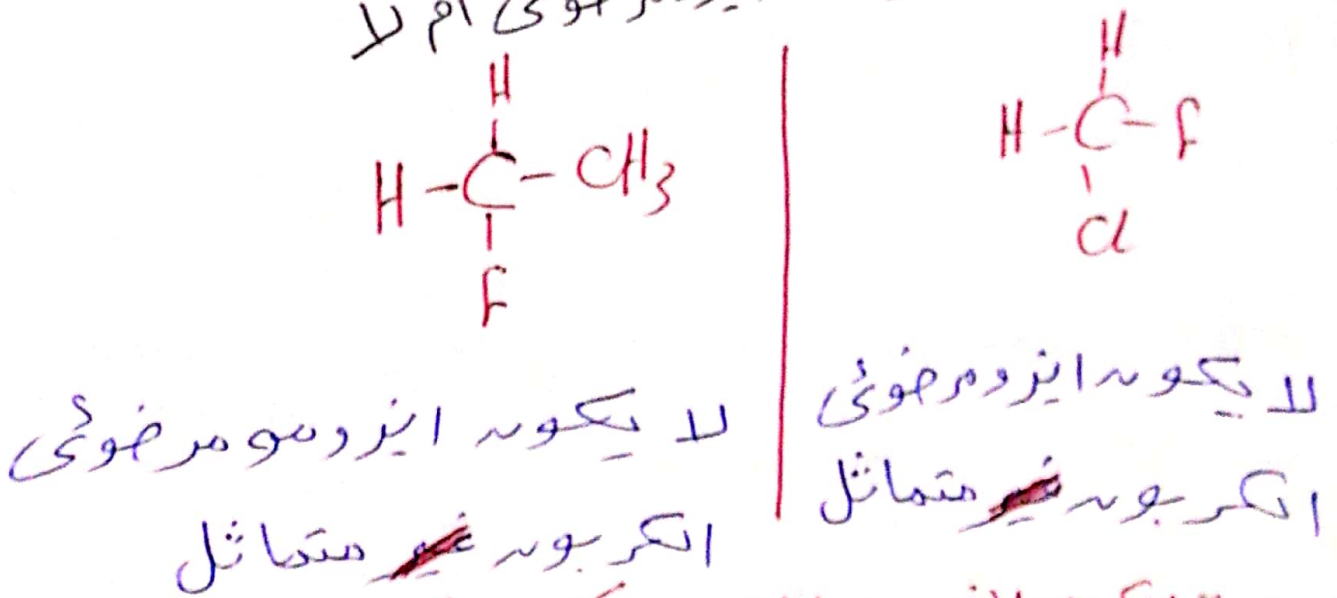 ام لا
H
H - C - F
Cl
لا يكون ايزومر ضوئي
الكربون متماثل
H
H - C - CH3
F
لا يكون ايزوسومر ضوئي
الكربون متماثل